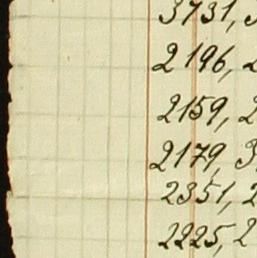 3731,
2196, 2
2159, 2
2179, 3
2351, 2
2225, 2